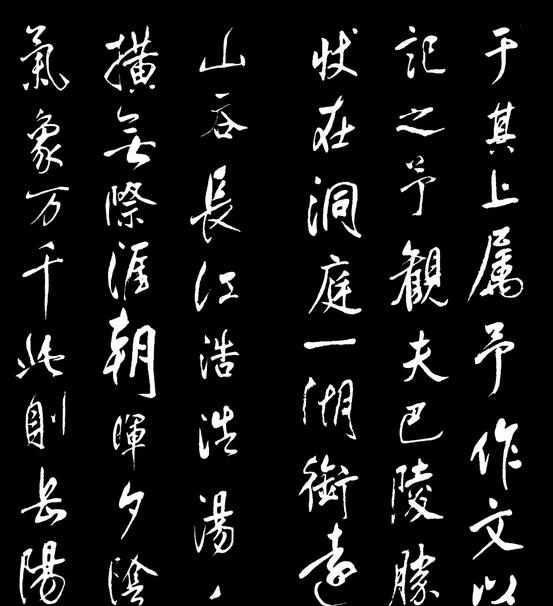 于其上属予作文以
記之予観夫巴陵勝
状在洞庭一湖銜遠
山吞長江浩浩湯〻
橫無際涯朝暉夕陰
氣象万千此則岳陽